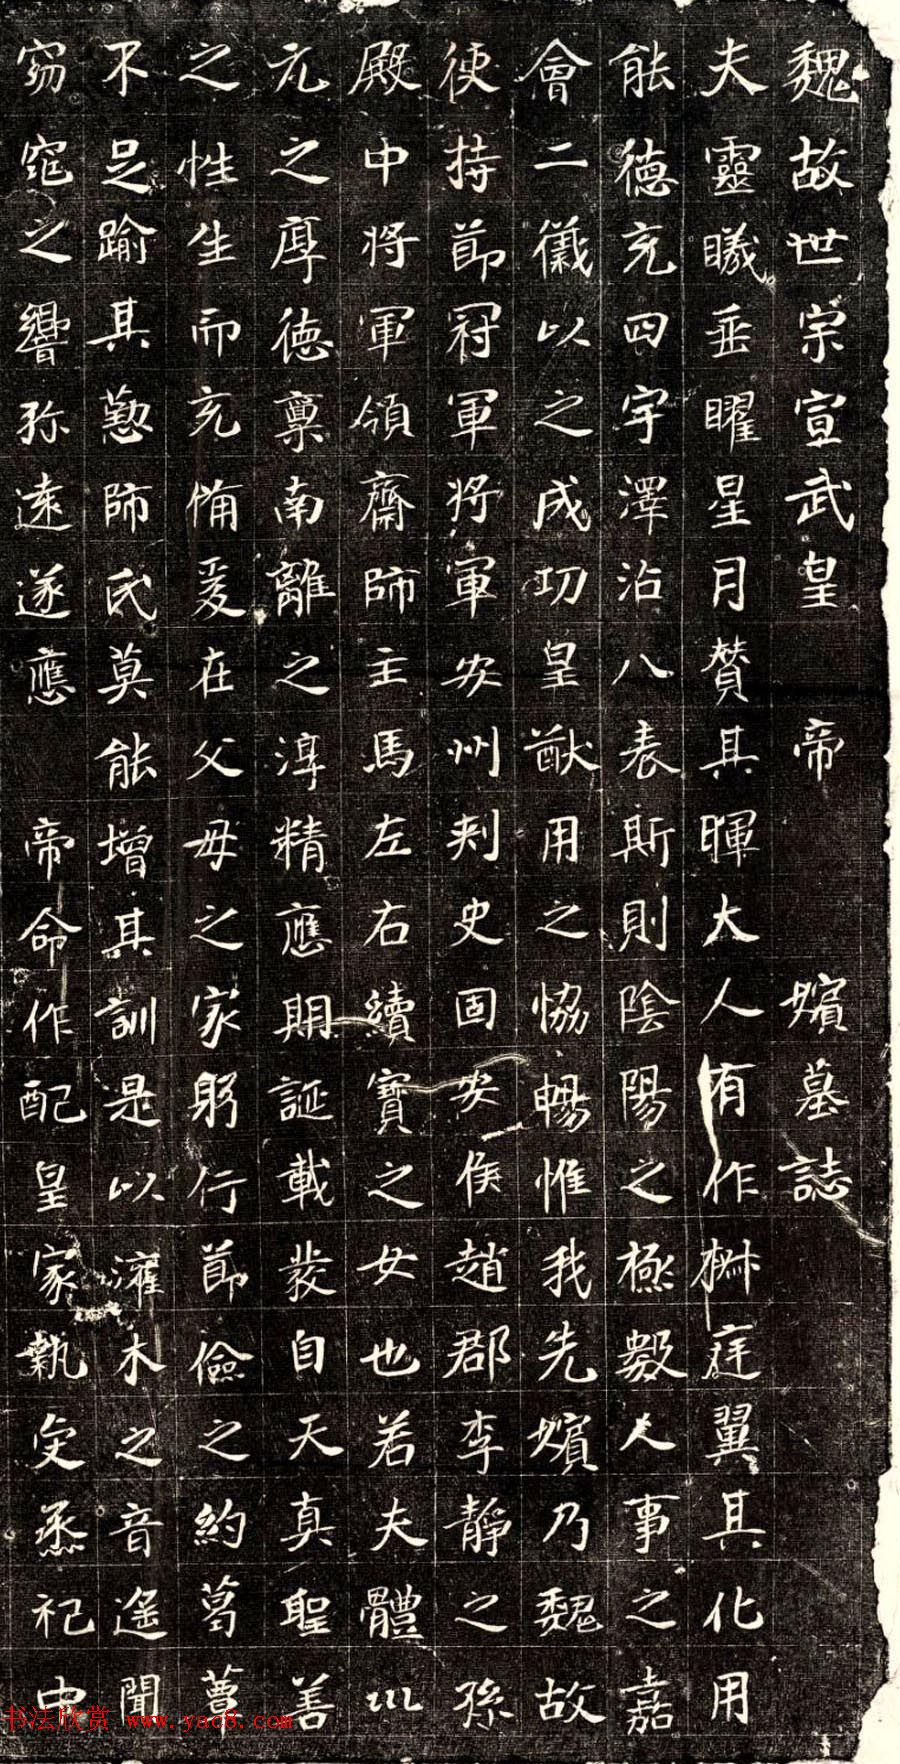 魏故世宗宣武皇 帝 嬪墓誌
夫靈曦垂曜星月贊其暉大人有作椒庭翼其化用
能德充四宇澤沾八表斯則陰陽之極數人事之嘉
會二儀以之成功皇猷用之恊暢惟我先嬪乃魏故
使持節冠軍將軍安州刺史固安侯趙郡李靜之孫
殿中將軍領齋師主馬左右續寶之女也若夫體巛
元之厚德稟南離之淳精應期誕載發自天真聖善
之性生而充愉爰在父母之家躬行節儉之約葛蕈
不足踰其懃師氏莫能增其訓是以灌木之音遥聞
窈窕之響弥遠遂應 帝命作配皇家執虔烝祀中
书法欣赏 www.yac8.com